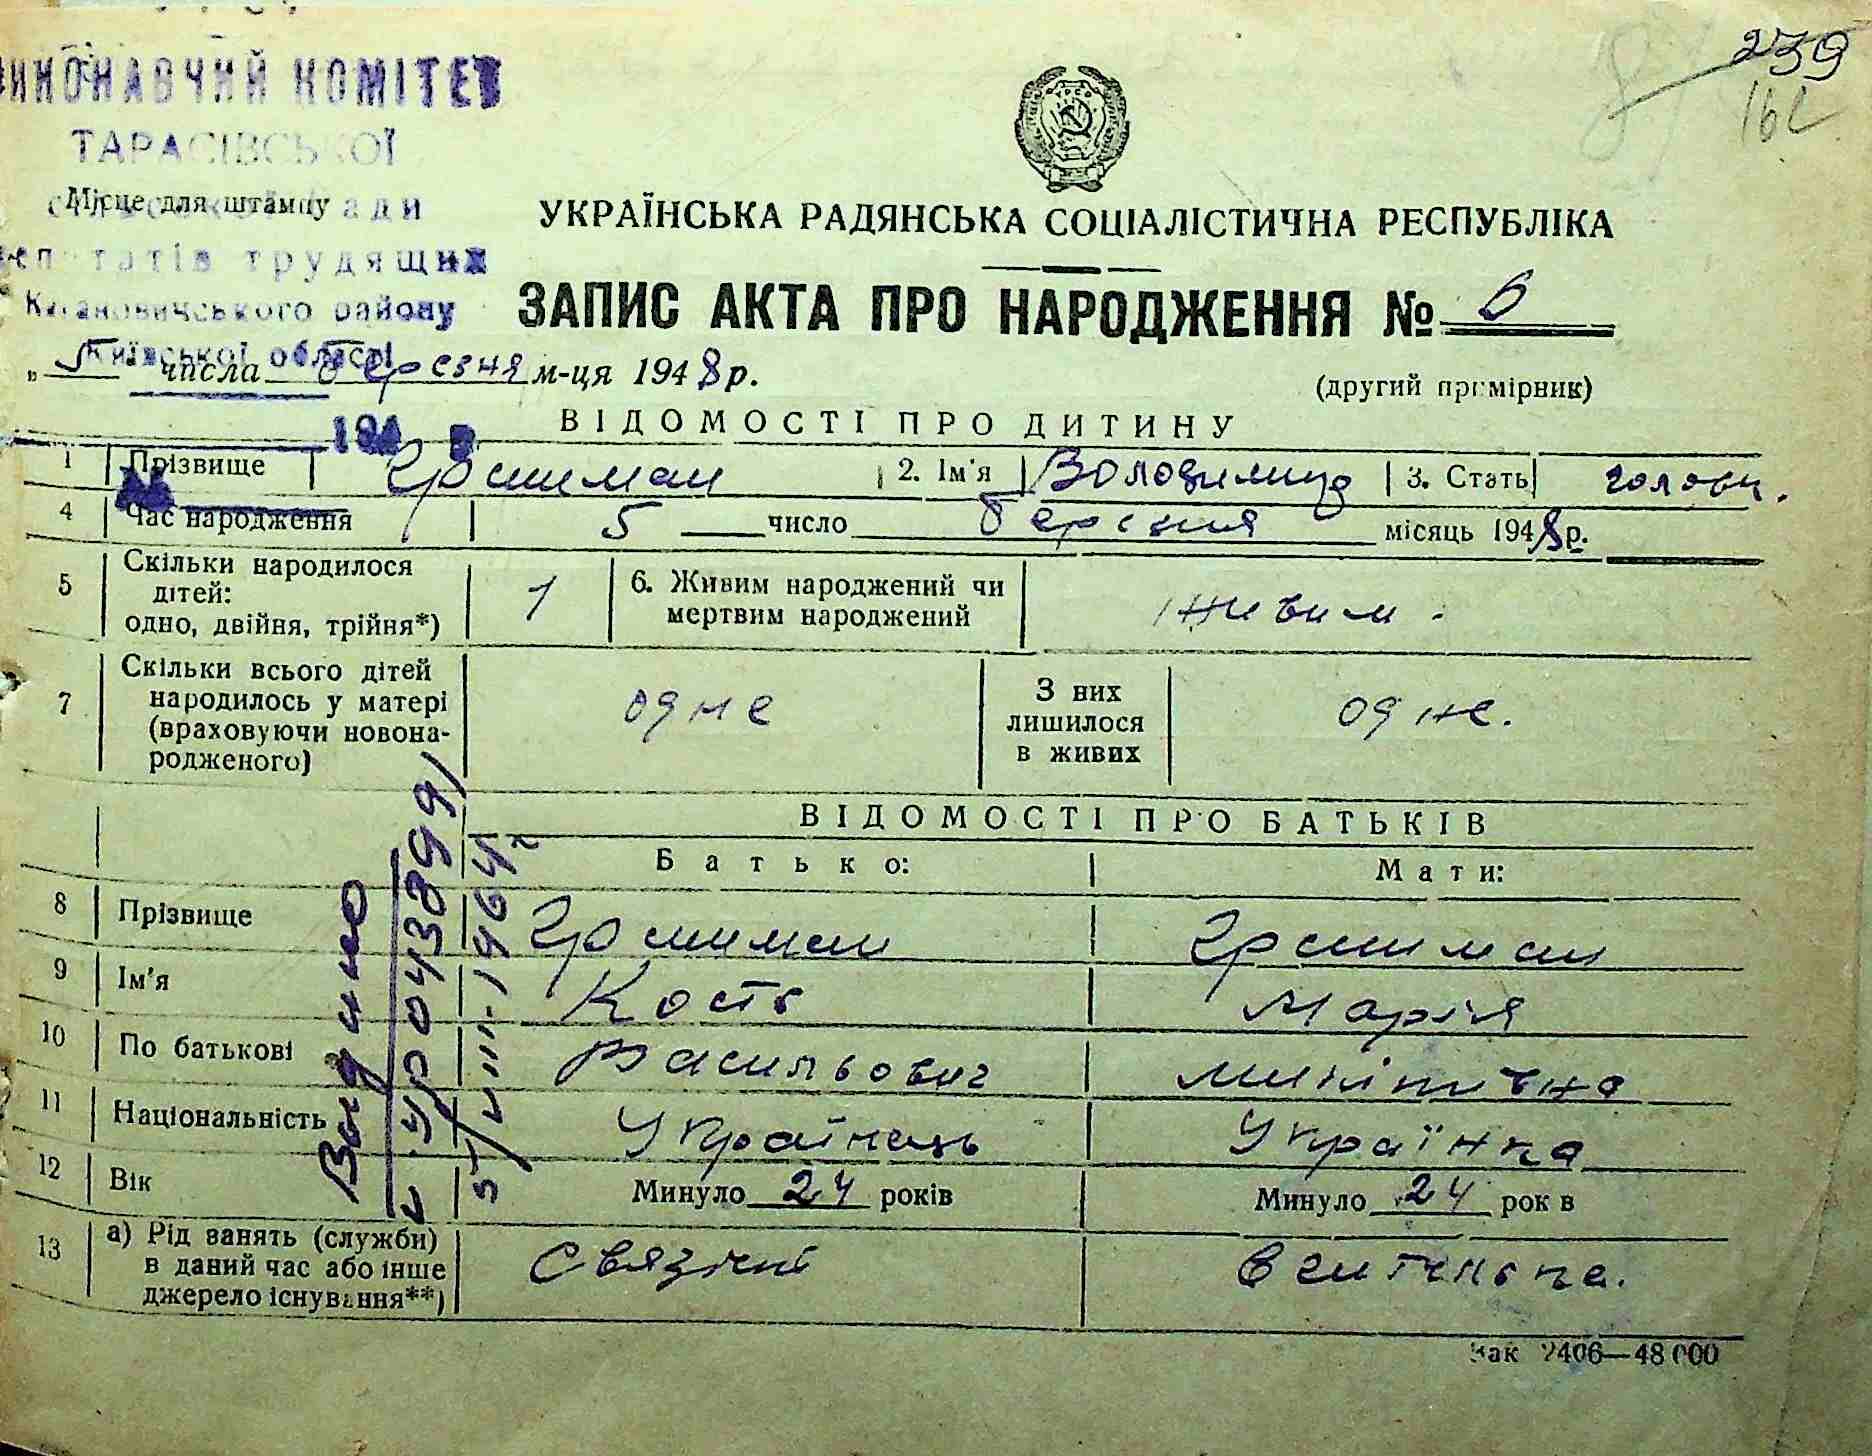 239
ВИКОНАВЧИЙ КОМІТЕТ
ТАРАСІВСЬКОЇ
Місце для штампу
ради
депутатів трудящих
Кагановичського району
Київської області
УКРАЇНСЬКА РАДЯНСЬКА СОЦІАЛІСТИЧНА РЕСПУБЛІКА
ЗАПИС АКТА ПРО НАРОДЖЕННЯ № 6
„ 5 числа березня м-ця 1948 р.
(другий примірник)
ВІДОМОСТІ ПРО ДИТИНУ
1 Прізвище 2. Ім'я Володимир 3. Стать чолові.
4 Час народження 5 число березня місяць 1948 р.
5 Скільки народилося дітей: одно, двійня, трійня*) 1 6. Живим народжений чи мертвим народжений живим.
7 Скільки всього дітей народилось у матері (враховуючи новонародженого) одне З них лишилося в живих одне.
ВІДОМОСТІ ПРО БАТЬКІВ
Батько: Мати:
8 Прізвище
9 Ім'я Кость Марія
10 По батькові Васильович Микитівна
11 Національність Українець Українка
12 Вік Минуло 24 років Минуло 24 рок в
13 а) Рід занять (служби) в даний час або інше джерело існування**) Связіст
Выдано
5/VIII-1964
Зак 2406—48 000